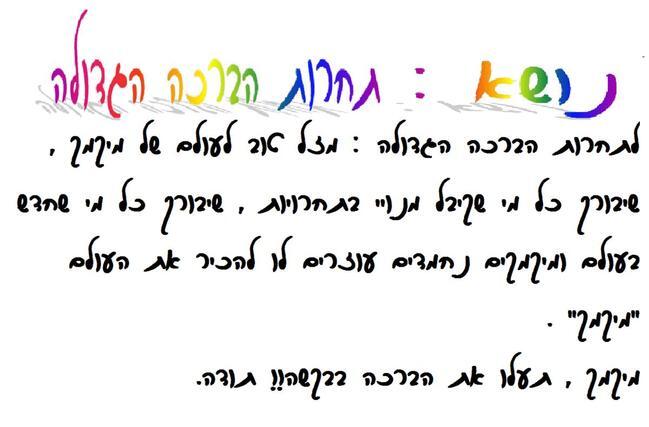 נושא : תחרות הברכה הגדולה
לתחרות הברכה הגדולה : מזל טוב לעולם של מיקמק ,
שיבורק כל מי שקיבל מנויי בתחרויות , שיבורק כל מי שחדש
בעולם ומיקמקים נחמדים עוזרים לו להכיר את העולם
"מיקמק" .
מיקמק , תעלו את הברכה בבקשה!! תודה.